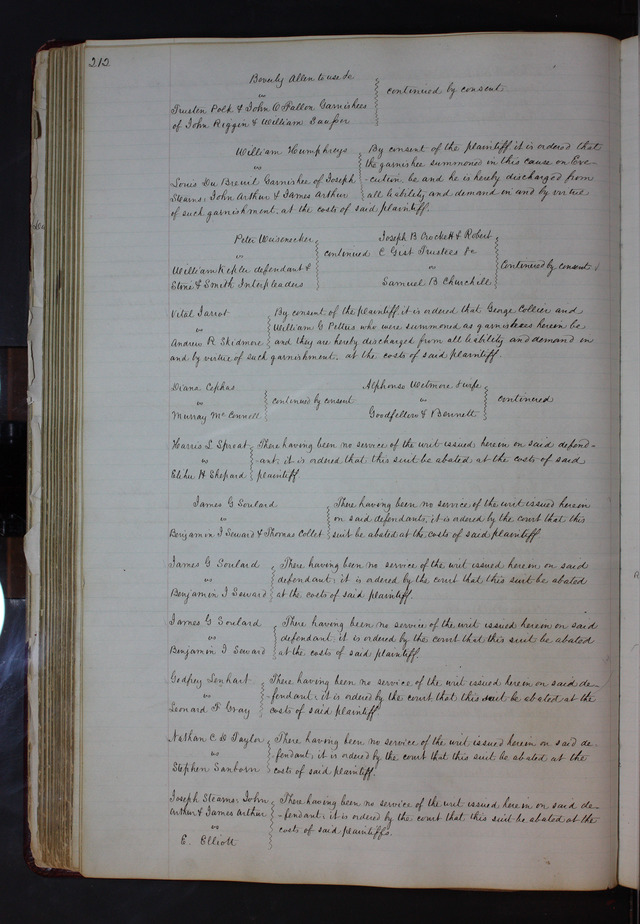 212
Beverly Allen to use &c
vs
Trusten Polk & John O Fallon Garnishees
of John Riggin & William
continued by consent
William Humphreys
vs
Louis Du Breuil Garnishee of Joseph
Stearns, John Arthur & James Arthur
By consent of the plaintiff it is ordered that
the garnishee summoned in this cause on Exe-
-cution be and he is hereby discharged from
all liability and demand in and by virtue
of such garnishment, at the costs of said plaintiff.
Peter Weisenecker
vs
William Kepler defendant &
Stone & Smith Interpleaders
continued
Joseph B Crockett & Robert
C Gist Trustees &c
vs
Samuel B Churchill
Continued by consent
Vital Jarrot
vs
Andrew R Skidmore
By consent of the plaintiff it is ordered that George Collier and
William G Pettus who were summoned as garnishees herein be
and they are hereby discharged from all liability and demand in
and by virtue of such garnishment, at the costs of said plaintiff.
Diana Cephas
vs
Murray McConnell
continued by consent
Alphonso Wetmore & wife
vs
Goodfellow & Bennett
continued
Harris L Sproat
vs
Elihu H Shepard
There having been no service of the writ issued herein on said defend-
-ant; it is ordered that this suit be abated at the costs of said
plaintiff.
James G Soulard
vs
Benjamin I Seward & Thomas Collet
There having been no service of the writ issued herein
on said defendants, it is ordered by the court that this
suit be abated at the costs of said plaintiff
James G Soulard
vs
Benjamin I Seward
There having been no service of the writ issued herein on said
defendant; it is ordered by the court that this suit be abated
at the costs of said plaintiff.
James G Soulard
vs
Benjamin I Seward
There having been no service of the writ issued herein on said
defendant; it is ordered by the court that this suit be abated
at the costs of said plaintiff.
Godfrey Lenhart
vs
Leonard F Gray
There having been no service of the writ issued herein on said de-
-fendant; it is ordered by the court that this suit be abated at the
costs of said plaintiff
Nathan C D Taylor
vs
Stephen Sanborn
There having been no service of the writ issued herein on said de-
-fendant; it is ordered by the court that this suit be abated at the
costs of said plaintiff.
Joseph Stearns, John
Arthur & James Arthur
vs
E. Elliott
There having been no service of the writ issued herein on said de-
-fendant; it is ordered by the court that this suit be abated at the
costs of said plaintiffs.